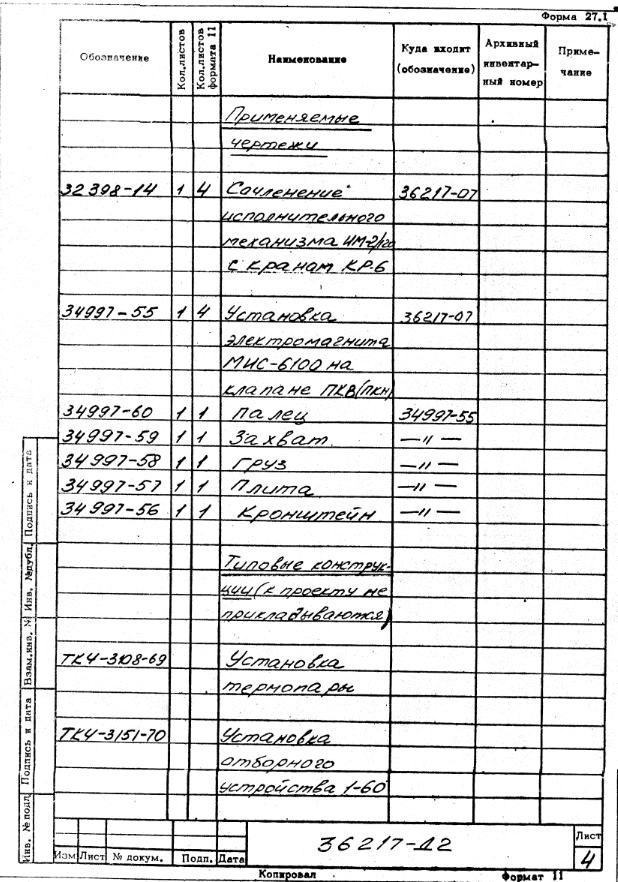 Форма 27.1
Обозначение Кол.листов Кол.листов формата 11 Наименование Куда входит (обозначение) Архивный инвентарный номер Примечание
Применяемые
чертежи
32398-14 1 4 Сочленение 36217-07
исполнительного
механизма ИМ-2/120
с краном КР-6
34997-55 1 4 Установка 36217-07
электромагнита
МИС-6100 на
клапане ПКВ(ПКН)
34997-60 1 1 Палец 34997-55
34997-59 1 1 Захват —〃—
34997-58 1 1 Груз —〃—
34997-57 1 1 Плита —〃—
34997-56 1 1 Кронштейн —〃—
Типовые конструк-
ции (к проекту не
прикладываются)
ТК4-3108-69 Установка
термопары
ТК4-3151-70 Установка
отборного
устройства 1-60
Инв. № подл. Подпись и дата Взам.инв. № Инв. №дубл. Подпись и дата
36217-Д2
Лист
4
Изм Лист № докум. Подп. Дата
Копировал Формат 11